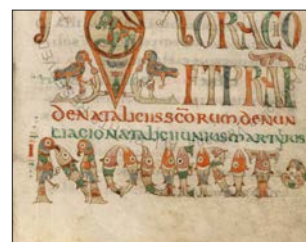 ORACO
ET PRAE
DENATALICIISSCORUM.DENUN
CIACIONATALICIIUNIUSMARTYRIS